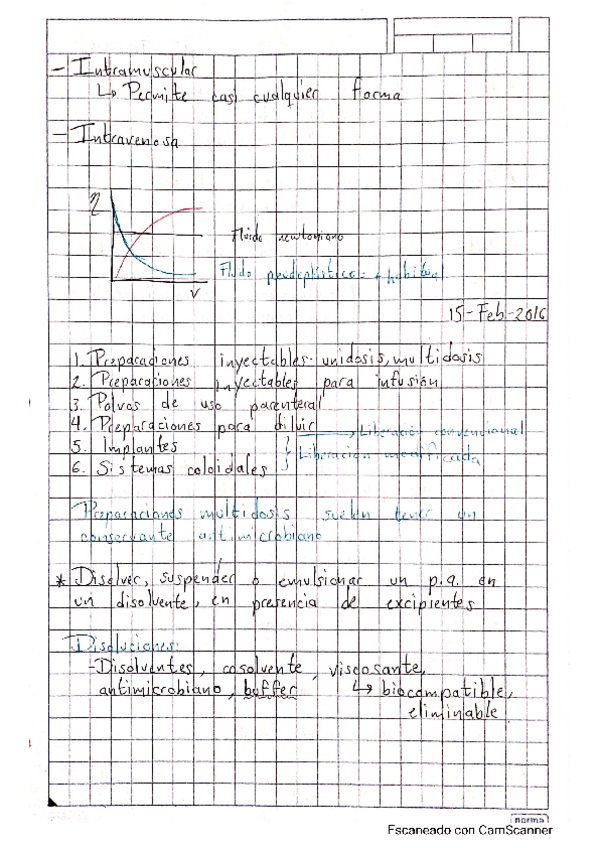 - Intramuscular
↳ Permite casi cualquier forma
- Intravenosa
η
Fluido newtoniano
Fluido pseudoplástico: + habitual
v
15-Feb-2016
1. Preparaciones inyectables: unidosis, multidosis
2. Preparaciones inyectables para infusión
3. Polvos de uso parenteral
4. Preparaciones para diluir → Liberación convencional
5. Implantes } Liberación modificada
6. Sistemas coloidales
Preparaciones multidosis suelen tener un
conservante antimicrobiano
* Disolver, suspender o emulsionar un p.a. en
un disolvente, en presencia de excipientes
Disoluciones:
-Disolventes, cosolvente, viscosante,
antimicrobiano, buffer ↳ biocompatible,
eliminable
norma
Escaneado con CamScanner